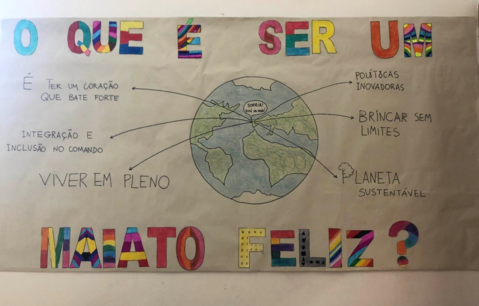 O QUE É SER UM
É TER UM CORAÇÃO
QUE BATE FORTE
POLÍTICAS
INOVADORAS
INTEGRAÇÃO E
INCLUSÃO NO COMANDO
BRINCAR SEM
LIMITES
VIVER EM PLENO
PLANETA
SUSTENTÁVEL
MAIATO FELIZ?